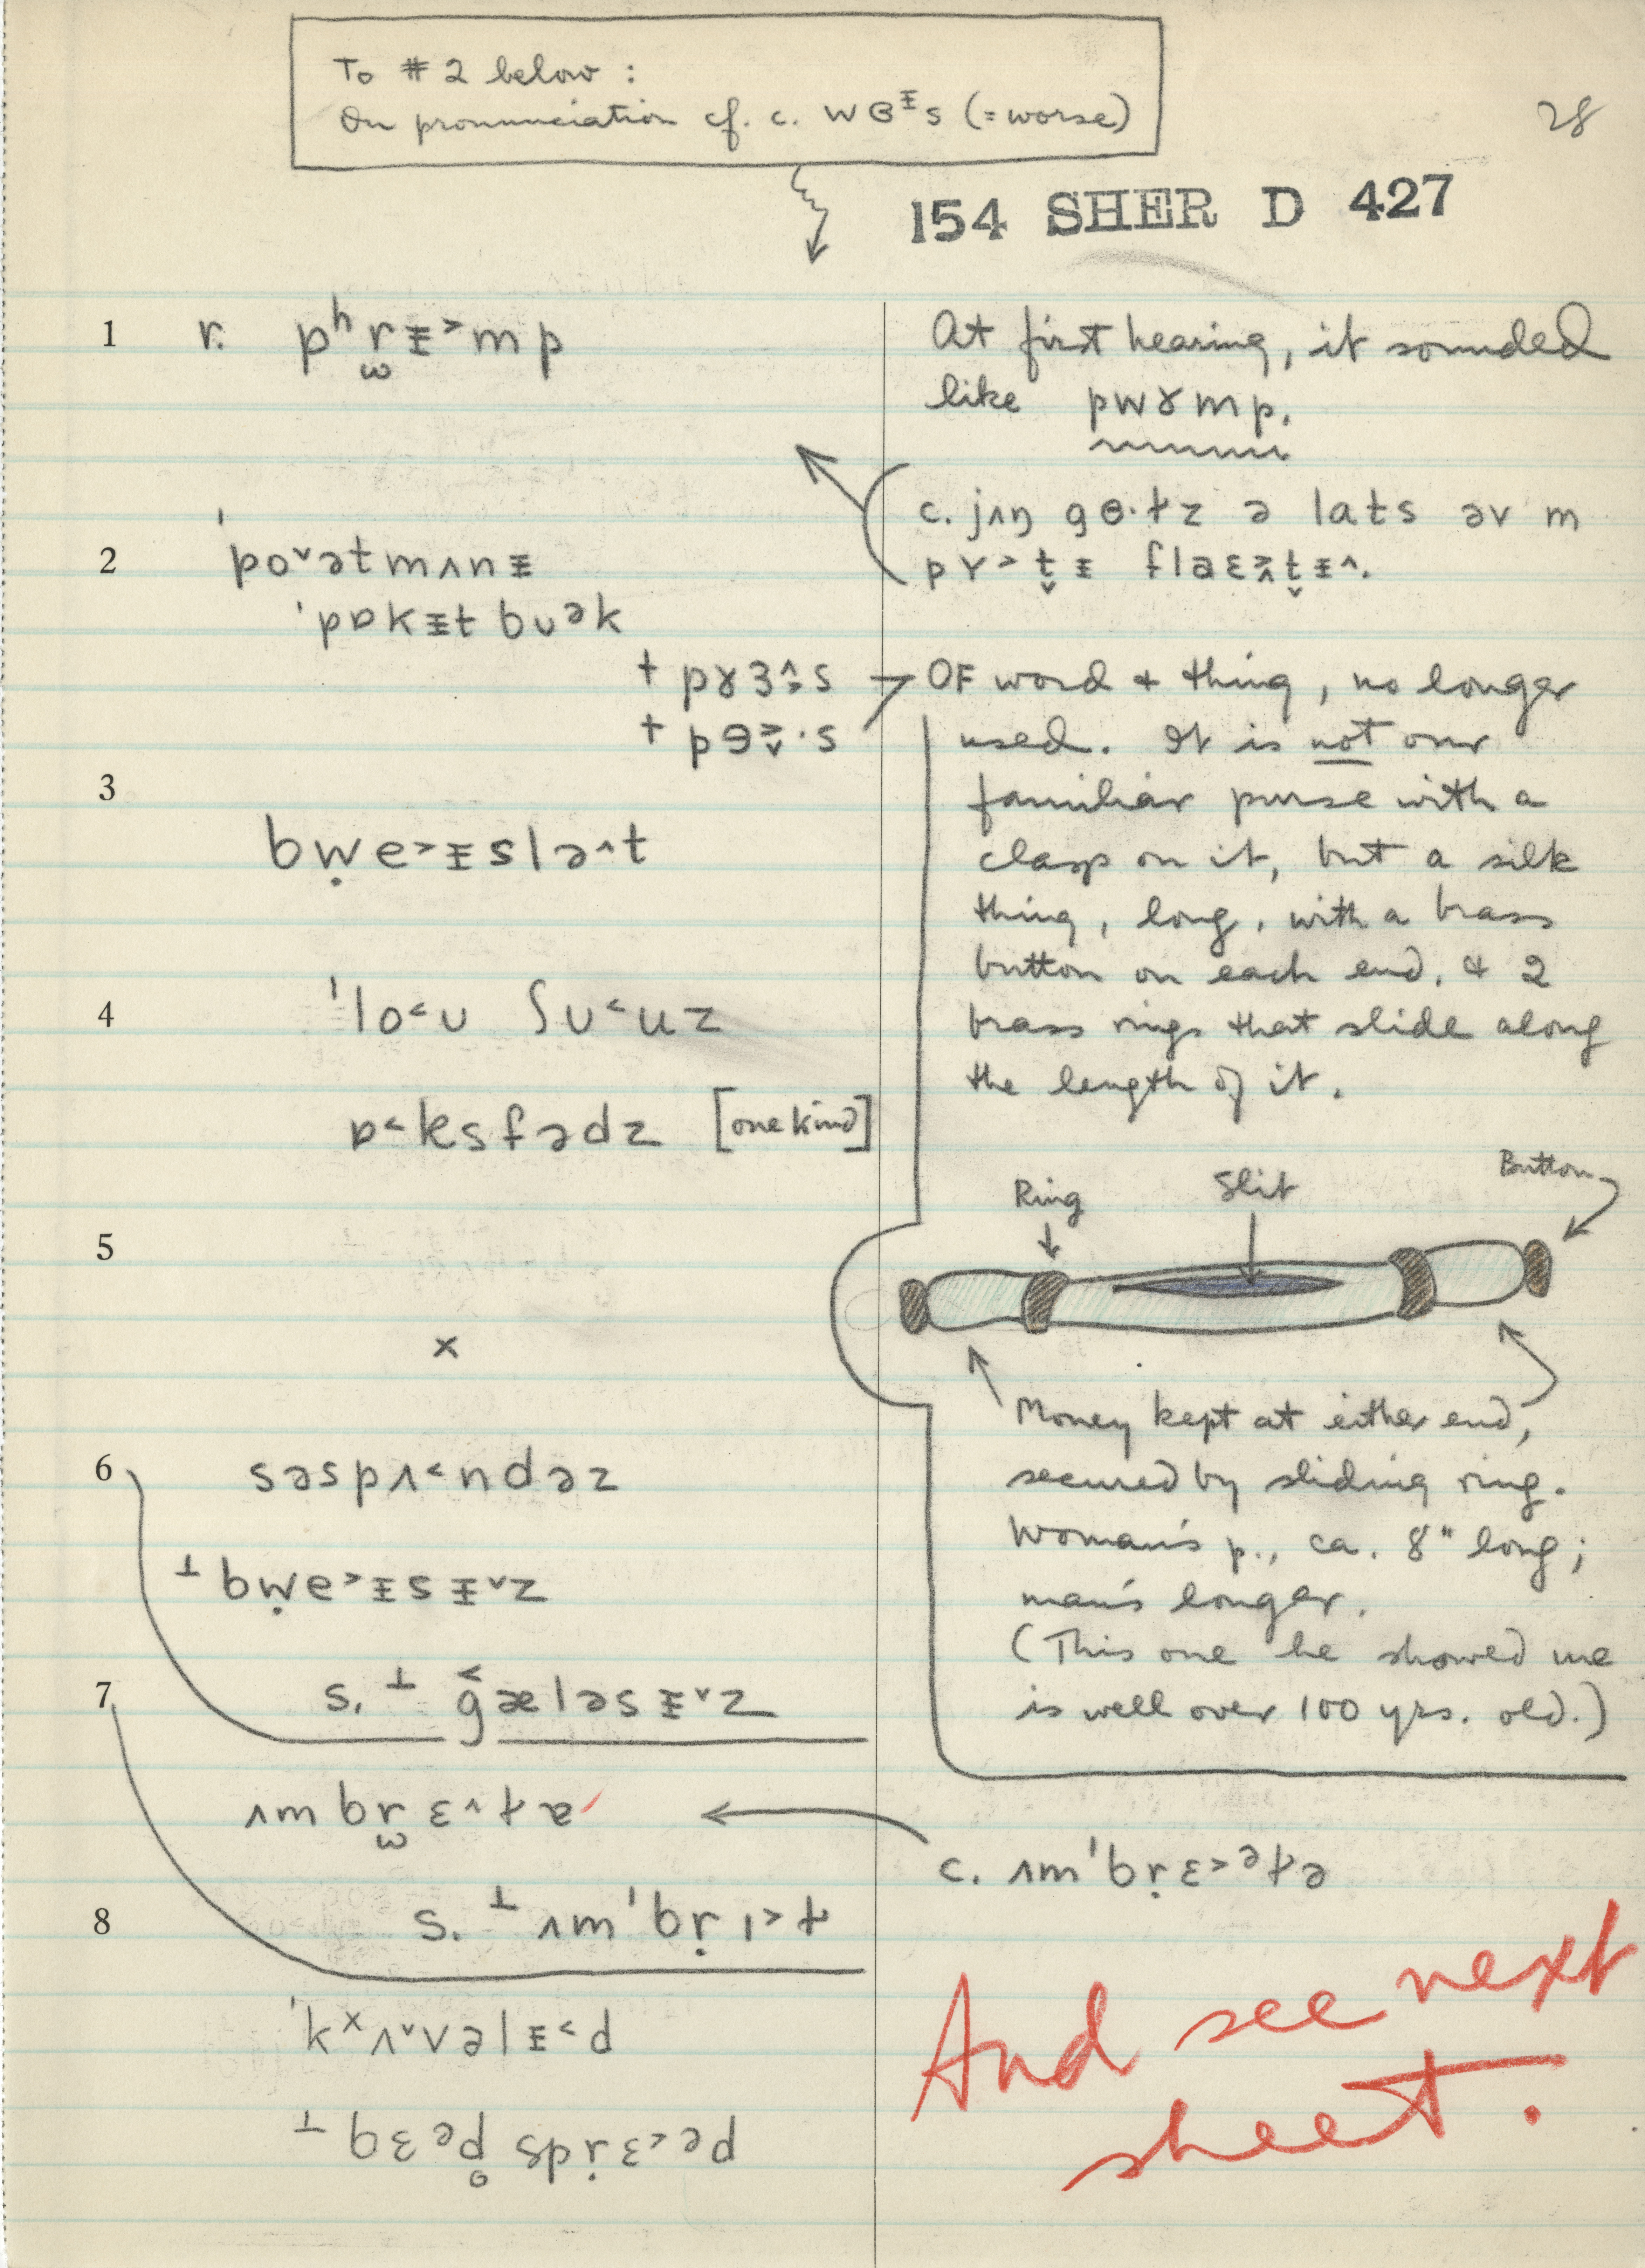 To # 2 below :
On pronunciation cf. c. wɞᵻs (= worse)
28
154 SHER D 427
1 r. pʰrᵻ˃mp
At first hearing, it sounded
like pwɤmp.
c. jʌŋ ə lats əv m
2 ˈpo˅ətmʌnᵻ
ˈpɒkᵻt buək
OF word & thing, no longer
used. It is not our
familiar purse with a
clasp on it, but a silk
thing, long, with a brass
button on each end, & 2
brass rings that slide along
the length of it.
3
bẉe˃ᵻslə^t
4 ˈlo˂ʊ ʃʊ˂uz
ɒ˂ksfədz [one kind]
5
Ring
Slit
Button
x
Money kept at either end,
secured by sliding ring.
Woman's p., ca. 8" long;
man's longer.
(This one he showed me
is well over 100 yrs. old.)
6 səspʌ˂ndəz
⊥ bẉe˃ᵻsᵻ˅z
7 s. ⊥ g̑æləsᵻ˅z
ʌmbrɛ^ɫɐ
c. ʌmˈbṛɛ˃ᵊɫə
8 s. ⊥ ʌmˈbṛɪ˃ɫ
ˈkˣʌ˅vəlᵻ˂d
And see next
sheet.